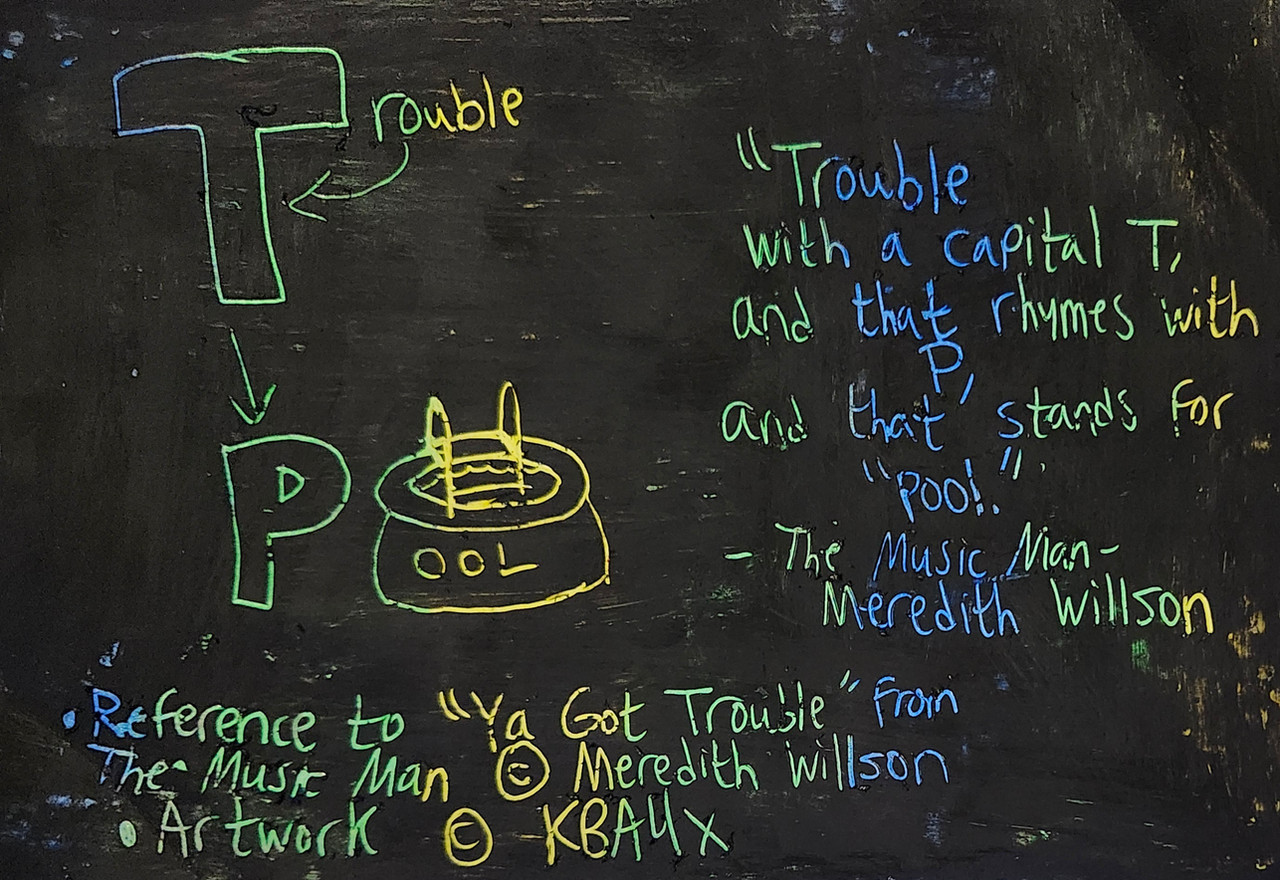 Trouble
"Trouble
with a capital T,
and that rhymes with
P,
and that stands for
"Pool."
- The Music Man -
Meredith Willson
P OOL
• Reference to "Ya Got Trouble" From
The Music Man © Meredith Willson
• Artwork © KBAUx